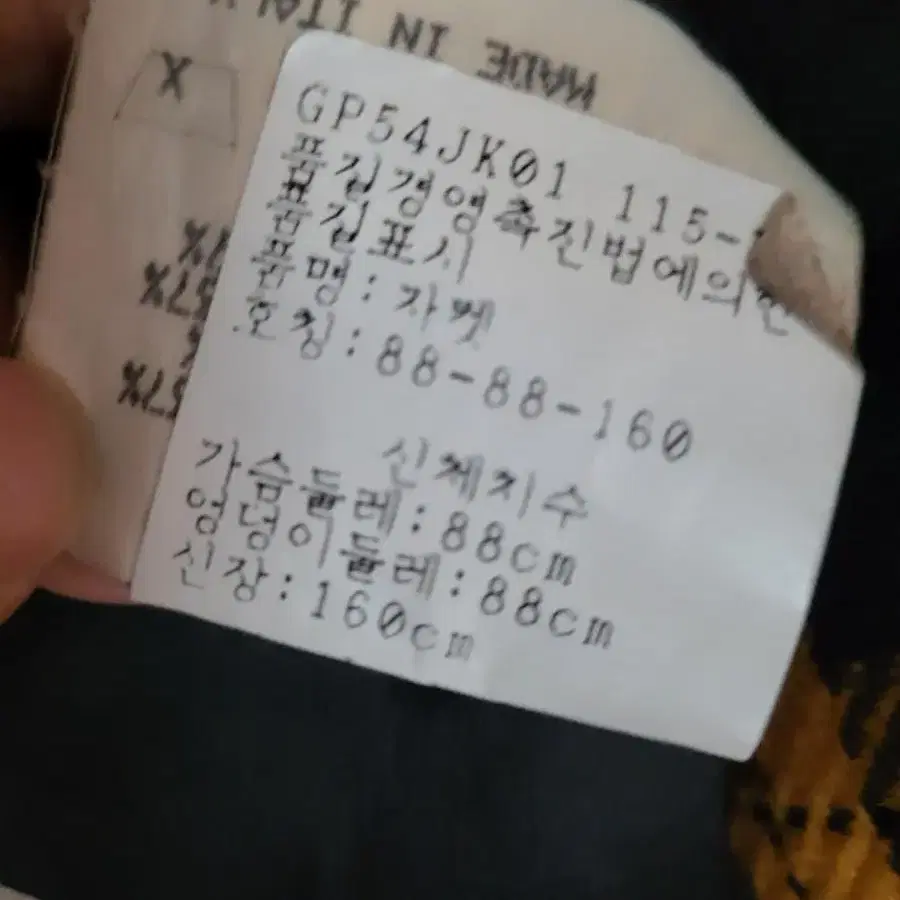 MADE IN ITALY
X
GP54JK01 115-
품질경영촉진법에의한
품질표시
품명:자켓
호칭:88-88-160
신체치수
가슴둘레:88cm
엉덩이둘레:88cm
신장:160cm